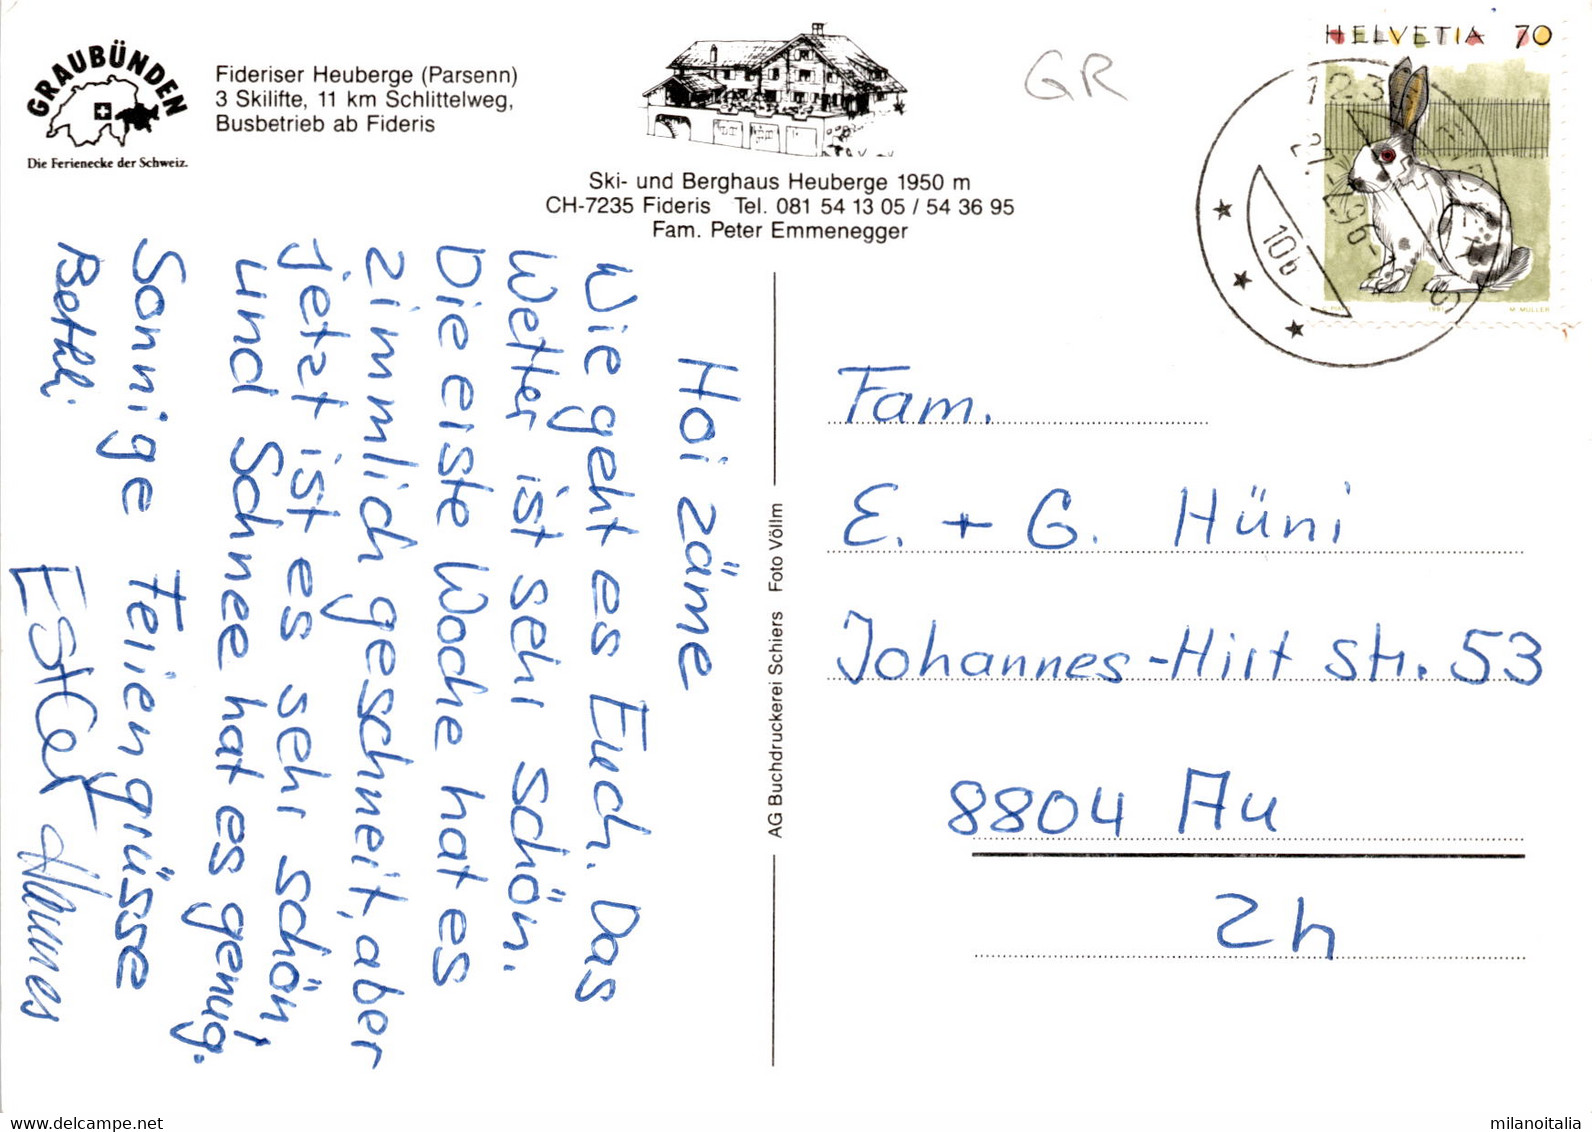 GRAUBÜNDEN
Die Ferienecke der Schweiz.
Fideriser Heuberge (Parsenn)
3 Skilifte, 11 km Schlittelweg,
Busbetrieb ab Fideris
Ski- und Berghaus Heuberge 1950 m
CH-7235 Fideris Tel. 081 54 13 05 / 54 36 95
Fam. Peter Emmenegger
GR
HELVETIA 70
1991
M. MÜLLER
10b
Hoi zäme
Wie geht es Euch. Das
Wetter ist sehr schön.
Die erste Woche hat es
zimmlich geschneit, aber
jetzt ist es sehr schön,
und Schnee hat es genug.
Sonnige Feriengrüsse
Bethli
Esther
Hannes
AG Buchdruckerei Schiers Foto Völlm
Fam.
E. + G. Hüni
Johannes-Hirt str. 53
8804 Au
Zh
milanoitalia